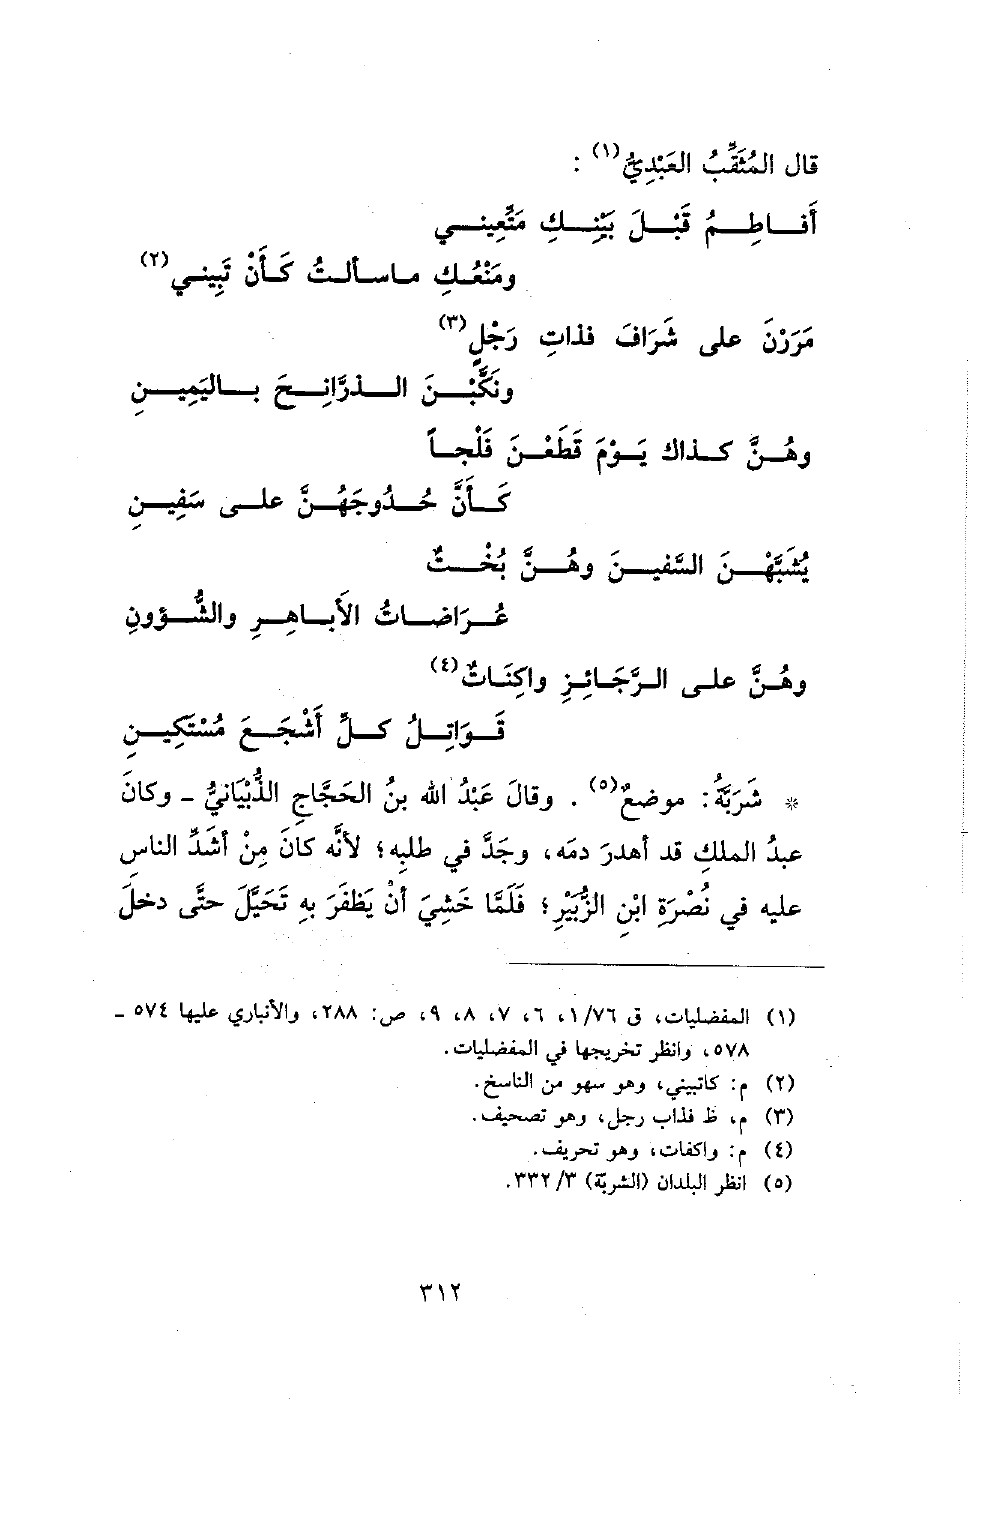 قال المُثَقِّبُ العَبْدِيُّ(١) :
أَفاطِمُ قَبْلَ بَيْنِكِ مَتِّعِيني
ومَنْعُكِ ماسألتُ كَأَنْ تَبِيني(٢)
مَرَرْنَ على شَرَافَ فذاتِ رَجْلٍ(٣)
ونَكَّبْنَ الذرَّانِحَ باليَمِينِ
وهُنَّ كذاك يَوْمَ قَطَعْنَ فَلْجاً
كَأَنَّ حُدُوجَهُنَّ على سَفِينِ
يُشَبَّهْنَ السَّفينَ وهُنَّ بُخْتٌ
عُرَاضاتُ الأَباهِرِ والشُّؤونِ
وهُنَّ على الرَّجَائِزِ واكِنَاتٌ(٤)
قَوَاتِلُ كلِّ أَشْجَعَ مُسْتَكِينِ
* شَرَبَّةُ: موضعٌ(٥) . وقالَ عَبْدُ الله بنُ الحَجَّاجِ الذُّبْيَانيُّ ـ وكانَ
عبدُ الملكِ قد أهدرَ دمَه، وجَدَّ في طلبِه؛ لأنَّه كانَ مِنْ أشَدِّ الناسِ
عليه في نُصْرَةِ ابْنِ الزُّبَيْرِ؛ فَلَمَّا خَشِيَ أنْ يَظفَرَ بهِ تَحَيَّلَ حتَّى دخلَ
(١) المفضليات، ق ١/٧٦، ٦، ٧، ٨، ٩، ص: ٢٨٨، والأنباري عليها ٥٧٤ ـ
٥٧٨، وانظر تخريجها في المفضليات.
(٢) م: كاتبيني، وهو سهو من الناسخ.
(٣) م، ظ فذاب رجل، وهو تصحيف.
(٤) م: واكفات، وهو تحريف.
(٥) انظر البلدان (الشربّة) ٣/ ٣٣٢.
٣١٢